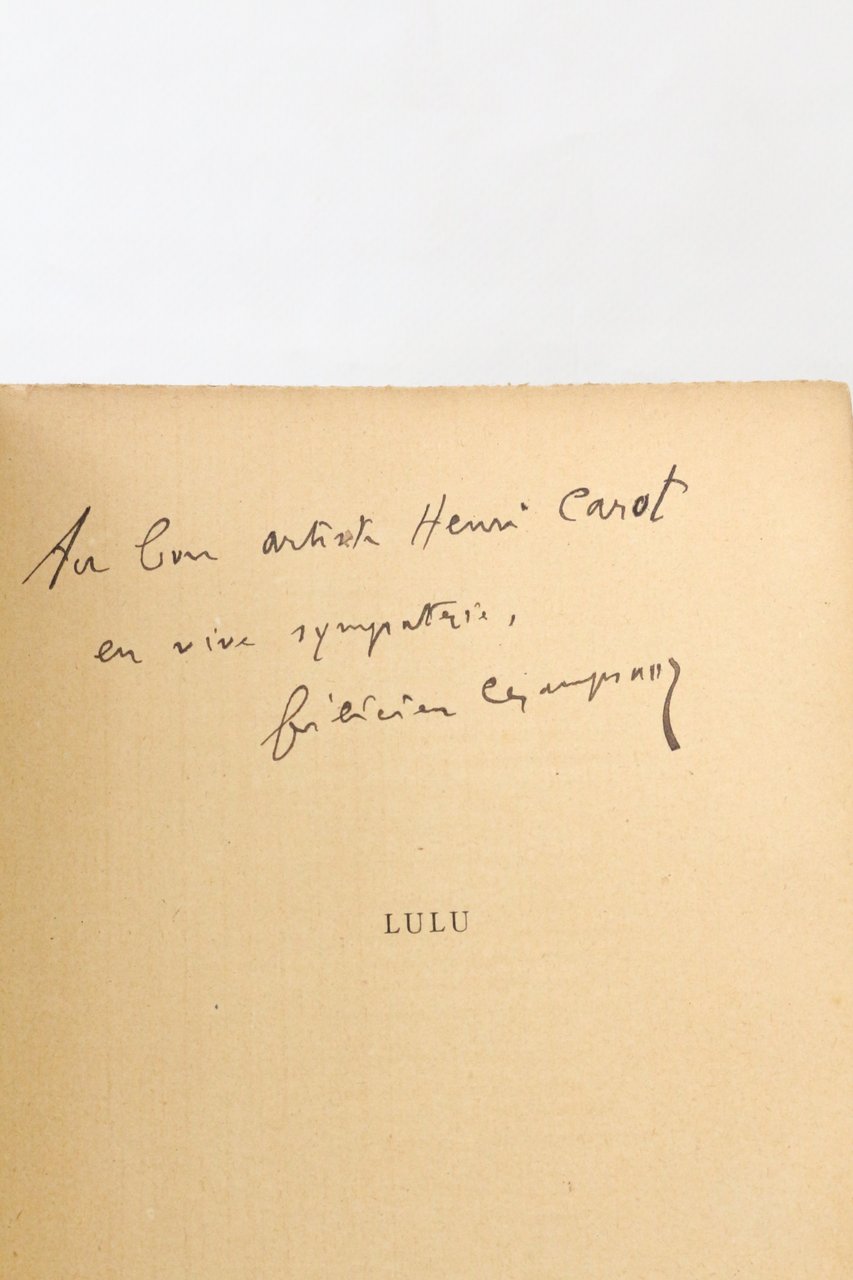 Au bon artiste Henri Carot
en vive sympathie,
Félicien Champsaur
LULU